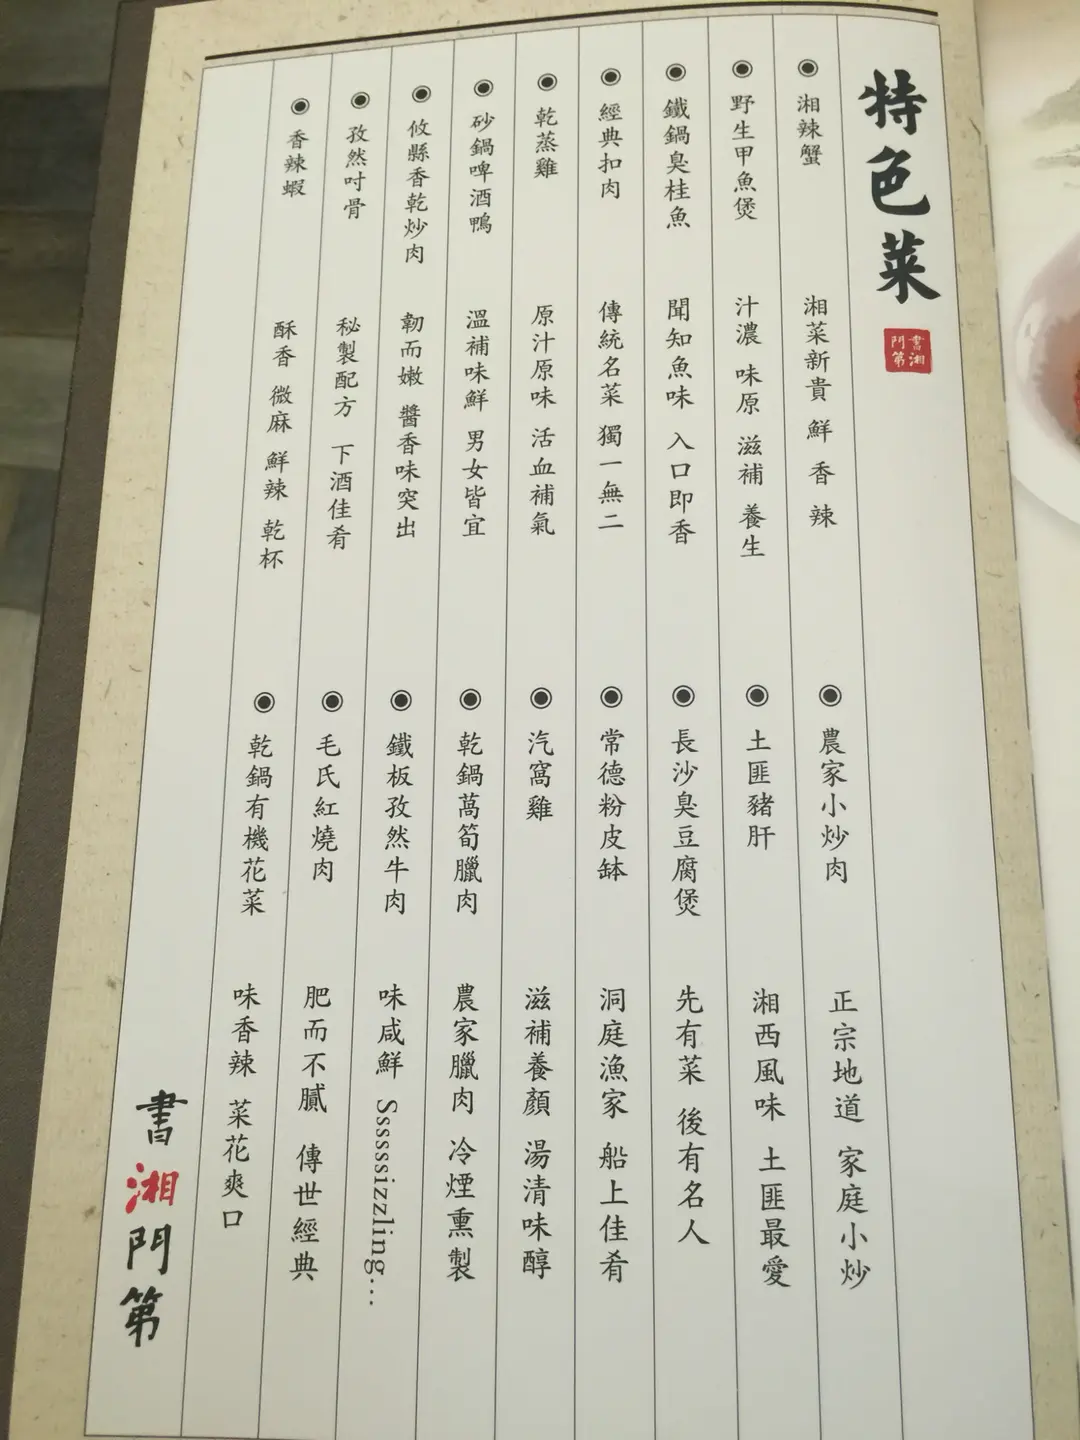 特色菜
書湘門第
湘辣蟹 湘菜新貴 鮮 香 辣
野生甲魚煲 汁濃 味原 滋補 養生
鐵鍋臭桂魚 聞知魚味 入口即香
經典扣肉 傳統名菜 獨一無二
乾蒸雞 原汁原味 活血補氣
砂鍋啤酒鴨 溫補味鮮 男女皆宜
攸縣香乾炒肉 韌而嫩 醬香味突出
孜然吋骨 秘製配方 下酒佳肴
香辣蝦 酥香 微麻 鮮辣 乾杯
農家小炒肉 正宗地道 家庭小炒
土匪豬肝 湘西風味 土匪最愛
長沙臭豆腐煲 先有菜 後有名人
常德粉皮缽 洞庭漁家 船上佳肴
汽窩雞 滋補養顏 湯清味醇
乾鍋萵筍臘肉 農家臘肉 冷煙熏製
鐵板孜然牛肉 味咸鮮 Sssssssizzling...
毛氏紅燒肉 肥而不膩 傳世經典
乾鍋有機花菜 味香辣 菜花爽口
書湘門第